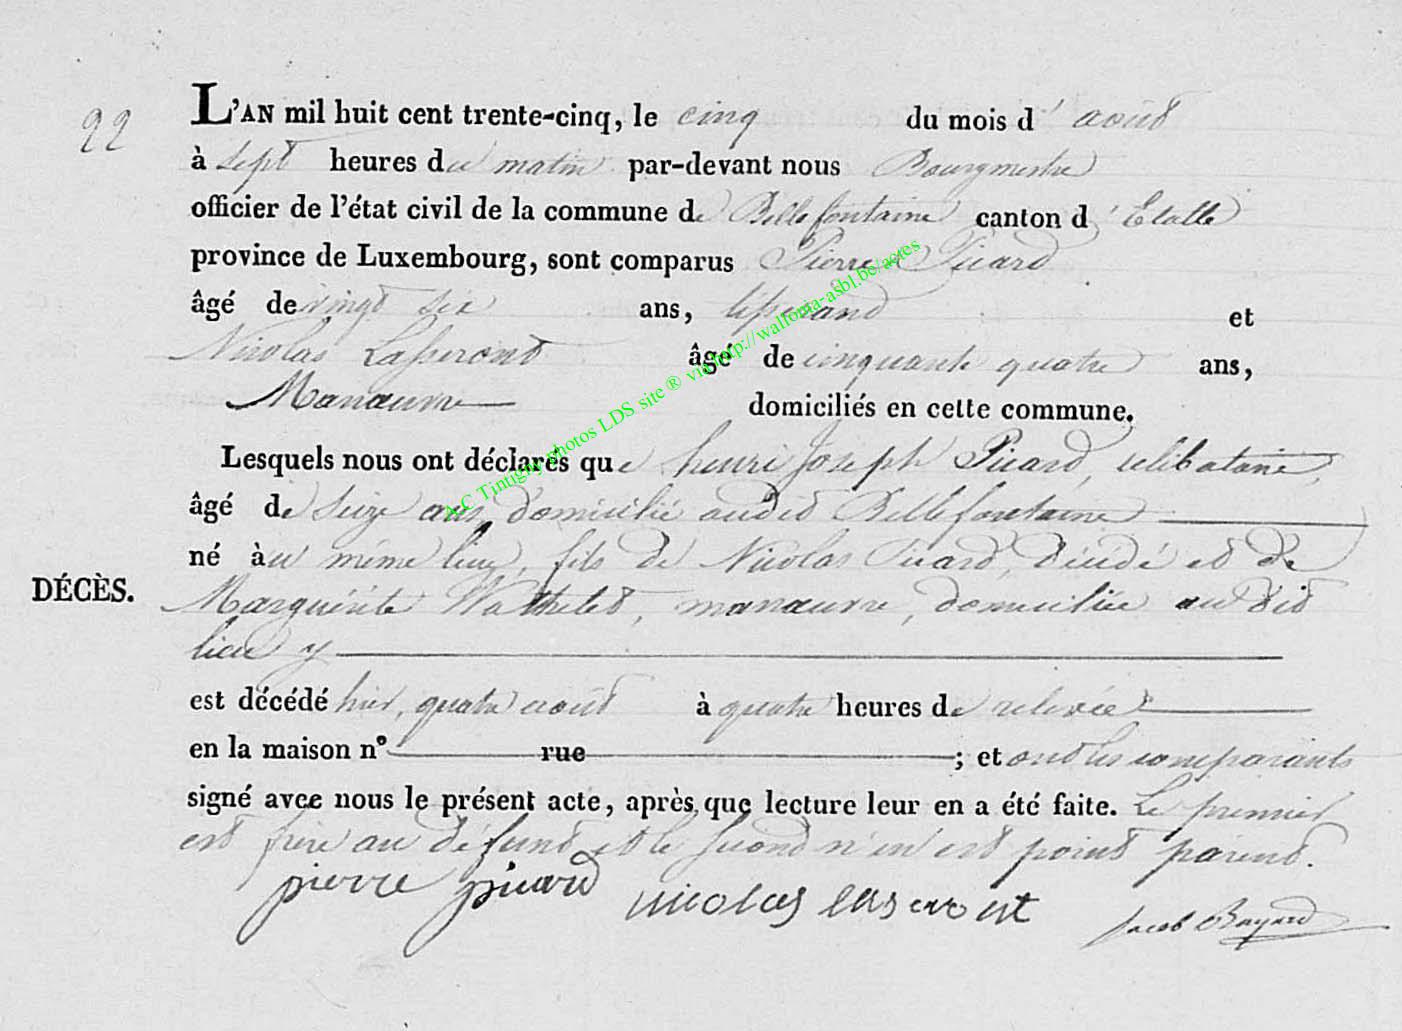 22
L'AN mil huit cent trente-cinq, le cinq du mois d'août
à sept heures du matin par-devant nous Bourgmestre
officier de l'état civil de la commune de Bellefontaine canton d'Etalle
province de Luxembourg, sont comparus Pierre Picard
âgé de vingt six ans, et
Nicolas Lasseront âgé de cinquante quatre ans,
Manœuvre domiciliés en cette commune.
Lesquels nous ont déclarés que henri Joseph Picard, celibataire,
âgé de seize ans, domicilié audit Bellefontaine
né àu même lieu, fils de Nicolas Picard, décédé et de
Marguérite Wathelet, manœuvre, domiciliée au dit
lieu
est décédé hier, quatre août à quatre heures de relevée
en la maison nº rue ; et ont les comparants
signé avec nous le présent acte, après que lecture leur en a été faite. Le premier
est frère au défunt et le second n'en est point parent.
pierre picard nicolas Jacob Bayard
DÉCÈS.
A.C Tintigny photos LDS site ® via http://wallonia-asbl.be/actes